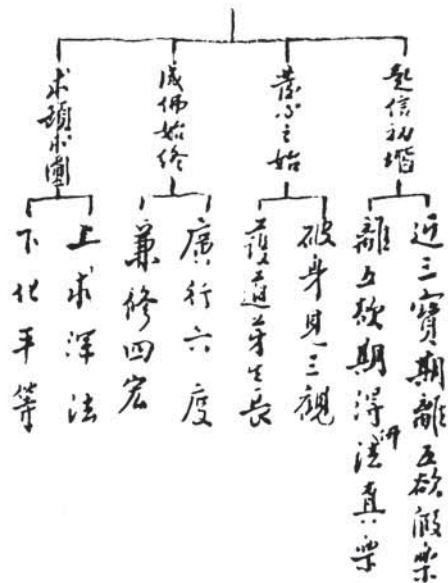 起信初階
近三寶期離五欲假樂
離五欲期得法真樂
發心之始
破身見三觀
護道芽生長
成佛始終
廣行六度
兼修四宏
求願求圓
上求深法
下化平等